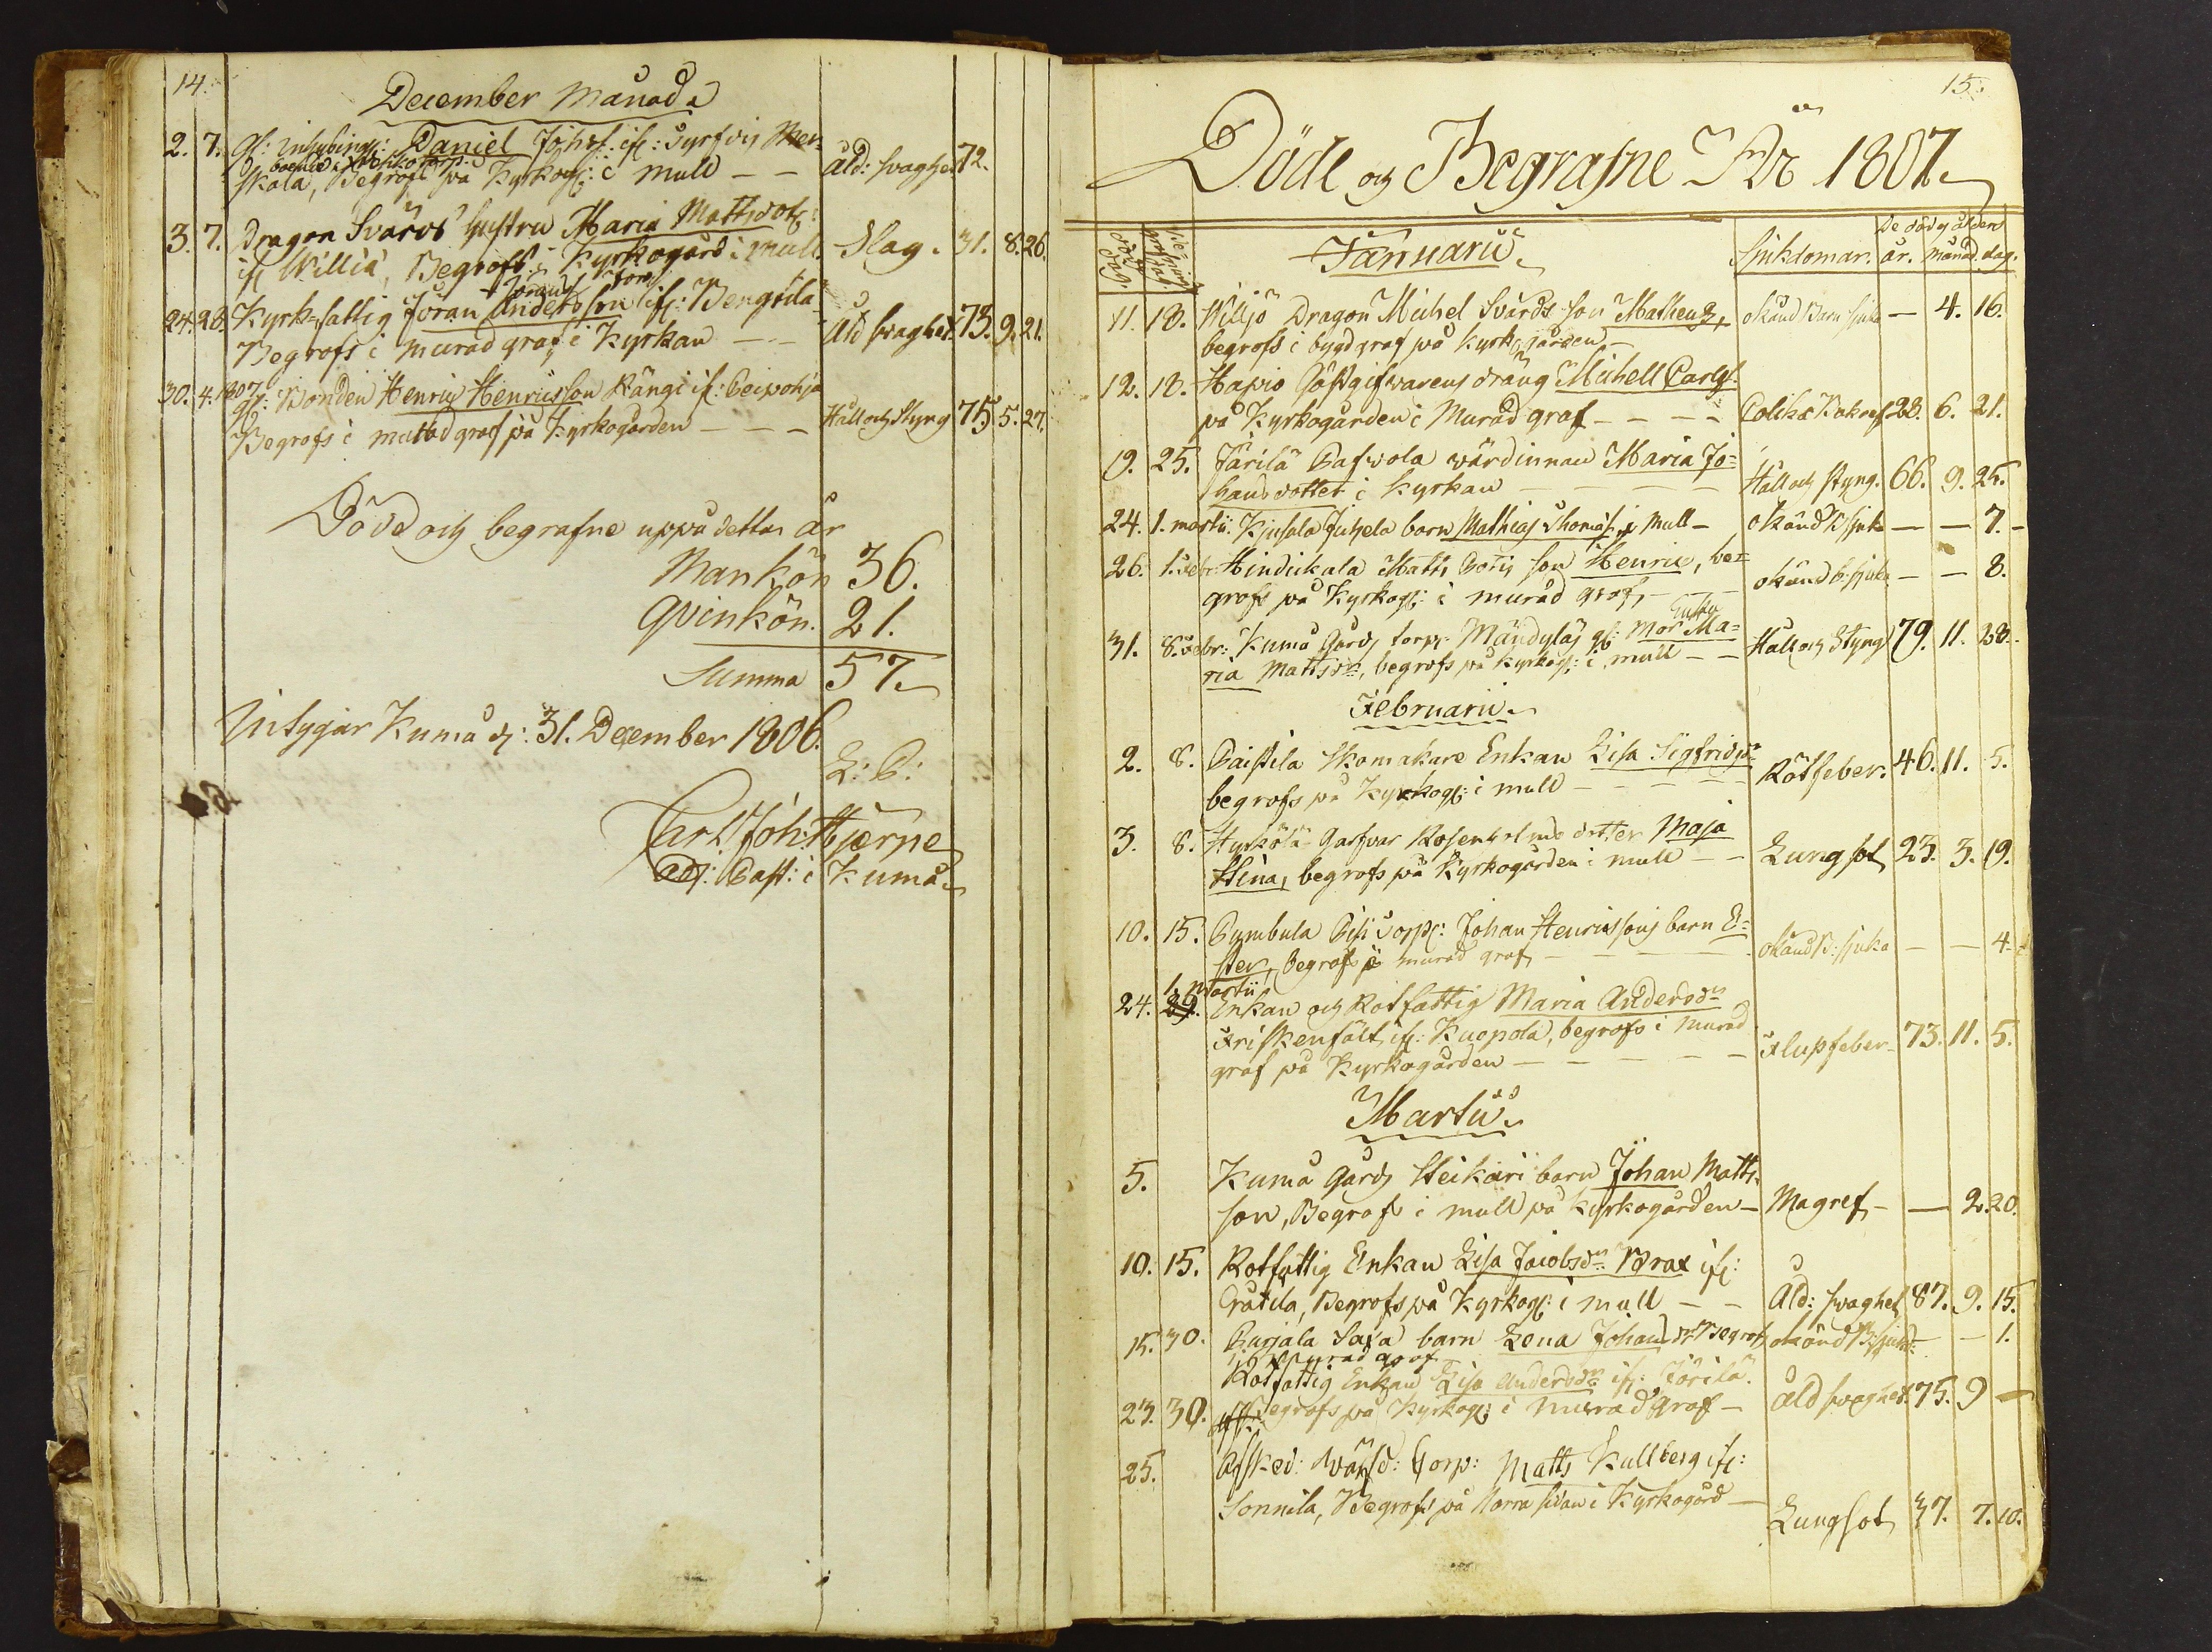 14.
December Månad
2. 7. gl: Inhysing: Daniel Johs: if: Tyrfvis
skälä, Begrofs på Kyrkog: i mull — — Åld: svaghet 72.
3. 7. Dragon Svärds hustru Maria Mattsdot:
if Williä, Begrofs i Kyrkogård i mull. Slag. 31. 8. 26.
24. 28. Kyrk-fattig Jöran Andersson if: Bengtilä
Begrofs i murad graf i Kyrkan — — Åld svaghet 73. 9. 21.
30. 4. 1807. gl: Bonden Henric Henricsson Rängi if: Peipohja
Begrofs i murad graf på Kyrkogården — — — Håll och Styng 75. 5. 27.
Döde och begrafne uppå detta år
Mankön 36.
Qvinkön. 21.
Summa 57.
Intygar Kumå d: 31. December 1806.
L: P:
Carl Joh: Hjerpe
adj: Past: i Kumå
15.
Döde och Begrafne År 1807.
De dödas ålder
Januarii. Sjukdomar. år. månad. dag.
11. 18. Williö Dragon Michel Svärds son Matheus, okänd Barn sjuka — 4. 16.
begrofs i bygd graf på Kyrkogården —
12. 18. Hawio Gästgifwarens dräng Michell Carls:
på Kyrkogården i Murad graf — — — Colika 28. 6. 21.
19. 25. Järilä Pafwola wärdinnan Maria Jo-
hansdotter i Kyrkan — — — — Håll och styng. 66. 9. 25.
24. 1. martii. Kjusala Juhela barn Mathias Thomass: i Mull — okänd B. sjuka — — 7.
26. 1. febr: Hindickala Matts son Henric, be-
grofs på Kyrkog: i murad graf, — — okänd b: sjuka — — 8.
31. 8. febr: Kumå Gårds torp: Mändyläs gl: Mor Ma-
ria Mattsdr, begrofs på Kyrkog: i mull — — Håll och Styng 79. 11. 28.
Februarii.
2. 8. Paistila Skomakare Enkan Lisa Sigfridsdr
begrofs på Kyrkog: i mull — — — — Rötfeber. 46. 11. 5.
3. 8. Hyrkölä Garfvar Rosenholms dotter Maja
Stina, begrofs på Kyrkogården i mull — — Lungsot 23. 3. 19.
10. 15. Pymbula Torp: Johan Henricssons barn E-
ster, begrofs i murad graf, — — — — okänd B: sjuka — — 4.
1. Martii
24. 29. Enkan och Rotfattig Maria Andersdr
Friskenfält, if: Kuopola, begrofs i murad
graf på Kyrkogården — — — — — Flussfeber 73. 11. 5.
Martii.
5. Kumå Gårds Steikari barn Johan Matts-
son, Begrafs i mull på Kyrkogården — Magref — — 2. 20.
10. 15. Rotfattig Enkan Lisa Jacobsdr Brax if:
Gråtila, Begrofs på Kyrkog: i mull — — Åld: svaghet 87. 9. 15.
15. 30. Purjala Saxa barn Lena Johansdr Begrofs okänd B: sjukd: — — 1.
i murad graf
Rotfattig Enkan Lisa Andersdr if: Järilä.
23. 30. Begrofs på Kyrkog: i Murad graf — åld svaghet. 75. 9 —
25. Afsked: Corp: Matts Kullberg if:
Sonnila, Begrofs på Norra sidan i Kyrkogård — Lungsot 37. 7. 10.